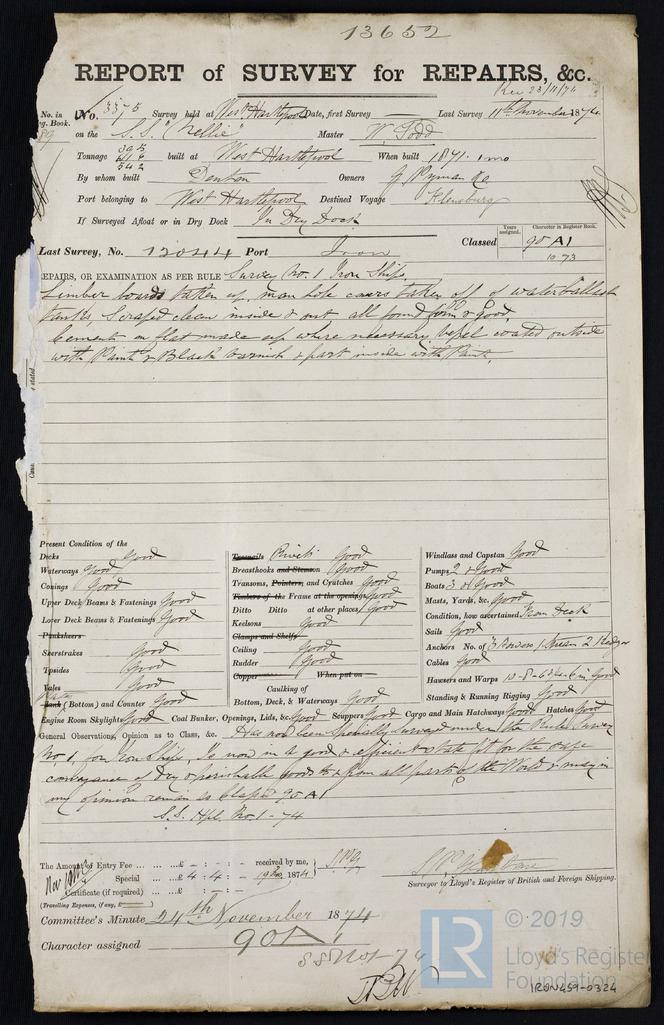 13652
REPORT of SURVEY for REPAIRS, &c.
Rec 23/11/74
No. in Reg. Book.
No. Survey held at West Hartlepool Date, first Survey Last Survey 11th November 1874
on the S.S. "Nellie" Master W. Todd
Tonnage 542 built at West Hartlepool When built 1871. 1 mo
By whom built Denton Owners G. Pyman & Co
Port belonging to West Hartlepool Destined Voyage
If Surveyed Afloat or in Dry Dock In Dry Dock
Years assigned. Character in Register Book.
Last Survey, No. 12044 Port Iron Classed 90 A1
10 73
REPAIRS, OR EXAMINATION AS PER RULE Survey No. 1 Iron Ships.
Limber boards taken up, man hole covers taken off of waterballast
tanks, scraped clean inside & out all found firm & good,
Cement on flat made up where necessary vessel coated outside
with Paint & Black varnish & part inside with Paint.
Present Condition of the
Decks Good
Waterways Good
Comings Good
Upper Deck Beams & Fastenings Good
Lower Deck Beams & Fastenings Good
Planksheers
Sheerstrakes Good
Topsides Good
Wales Good
(Bottom) and Counter Good
Treenails Rivets Good
Breasthooks and Stemson Good
Transoms, Pointers, and Crutches Good
Timbers of the Frame at the openings Good
Ditto Ditto at other places Good
Keelsons Good
Clamps and Shelfs
Ceiling Good
Rudder Good
Copper When put on
Caulking of
Bottom, Deck, & Waterways Good
Windlass and Capstan Good
Pumps 2 & Good
Boats 3 & Good
Masts, Yards, &c. Good
Condition, how ascertained From Deck
Sails Good
Anchors No. of 3 Bowers 1 Stream 2 Kedges
Cables Good
Hawsers and Warps Good
Standing & Running Rigging Good
Engine Room Skylights Good Coal Bunker, Openings, Lids, &c. Good Scuppers Good Cargo and Main Hatchways Good Hatches Good
General Observations, Opinion as to Class, &c. Has now been Specially surveyed under the Rules Survey
No. 1, for Iron Ships, is now in a good & efficient state fit for the safe
conveyance of Dry & perishable goods to & from all parts of the World & may in
my opinion remain as Classed 90 A1
S.S. Hpl No. 1 - 74
The Amount of Entry Fee ... £ - : - : - received by me,
Special ... £ 4 : 4 : - 1874
Certificate (if required)
(Travelling Expenses, if any, £
Surveyor to Lloyd's Register of British and Foreign Shipping.
Committee's Minute 24th November 1874
Character assigned 90A1
SS No1-74
LR
© 2019
Lloyd's Register
Foundation
IRON459-0324